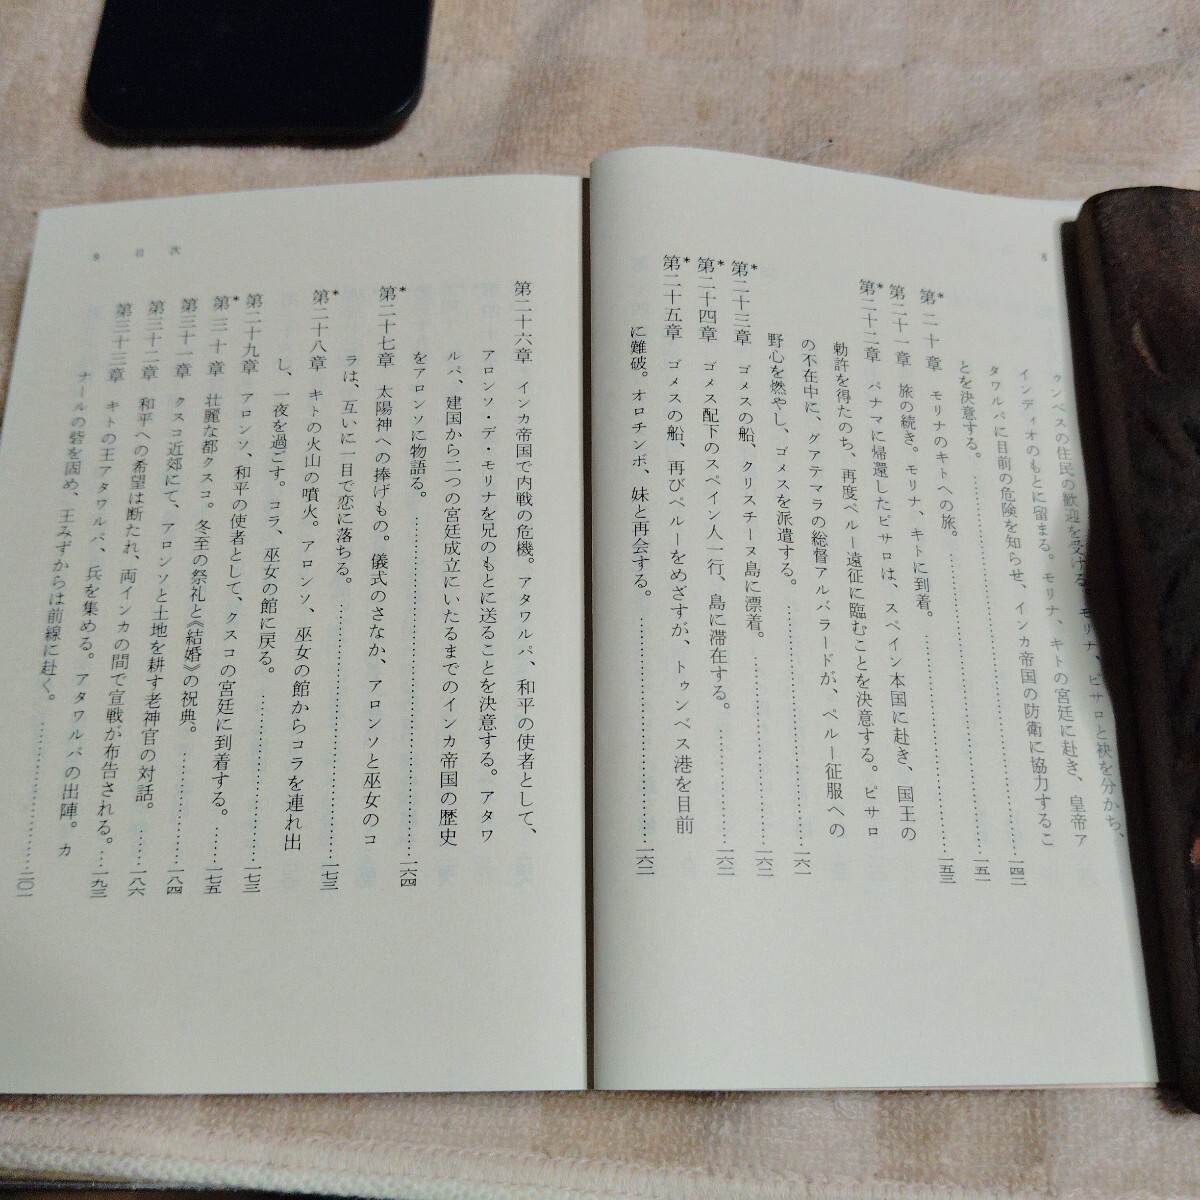 8
ゥンベスの住民の歓迎を受ける。モリナ、ピサロと袂を分かち、
インディオのもとに留まる。モリナ、キトの宮廷に赴き、皇帝ア
タワルパに目前の危険を知らせ、インカ帝国の防衛に協力するこ
とを決意する。……………一四二
*第二十章 モリナのキトへの旅。……………一五一
第二十一章 旅の続き。モリナ、キトに到着。……………一五三
*第二十二章 パナマに帰還したピサロは、スペイン本国に赴き、国王の
勅許を得たのち、再度ペルー遠征に臨むことを決意する。ピサロ
の不在中に、グアテマラの総督アルバラードが、ペルー征服への
野心を燃やし、ゴメスを派遣する。……………一六一
*第二十三章 ゴメスの船、クリスチーヌ島に漂着。……………一六二
*第二十四章 ゴメス配下のスペイン人一行、島に滞在する。……………一六二
*第二十五章 ゴメスの船、再びペルーをめざすが、トゥンベス港を目前
に難破。オロチンボ、妹と再会する。……………一六二
第二十六章 インカ帝国で内戦の危機。アタワルパ、和平の使者として、
アロンソ・デ・モリナを兄のもとに送ることを決意する。アタワ
ルパ、建国から二つの宮廷成立にいたるまでのインカ帝国の歴史
をアロンソに物語る。……………一六四
*第二十七章 太陽神への捧げもの。儀式のさなか、アロンソと巫女のコ
ラは、互いに一目で恋に落ちる。……………一七三
*第二十八章 キトの火山の噴火。アロンソ、巫女の館からコラを連れ出
し、一夜を過ごす。コラ、巫女の館に戻る。……………一七三
第二十九章 アロンソ、和平の使者として、クスコの宮廷に到着する。……一七五
*第三十章 壮麗な都クスコ。冬至の祭礼と《結婚》の祝典。……………一八四
第三十一章 クスコ近郊にて、アロンソと土地を耕す老神官の対話。……一八六
第三十二章 和平への希望は断たれ、両インカの間で宣戦が布告される。…一九三
第三十三章 キトの王アタワルパ、兵を集める。アタワルパの出陣。カ
ナールの砦を固め、王みずからは前線に赴く。……………二〇一
9 目次